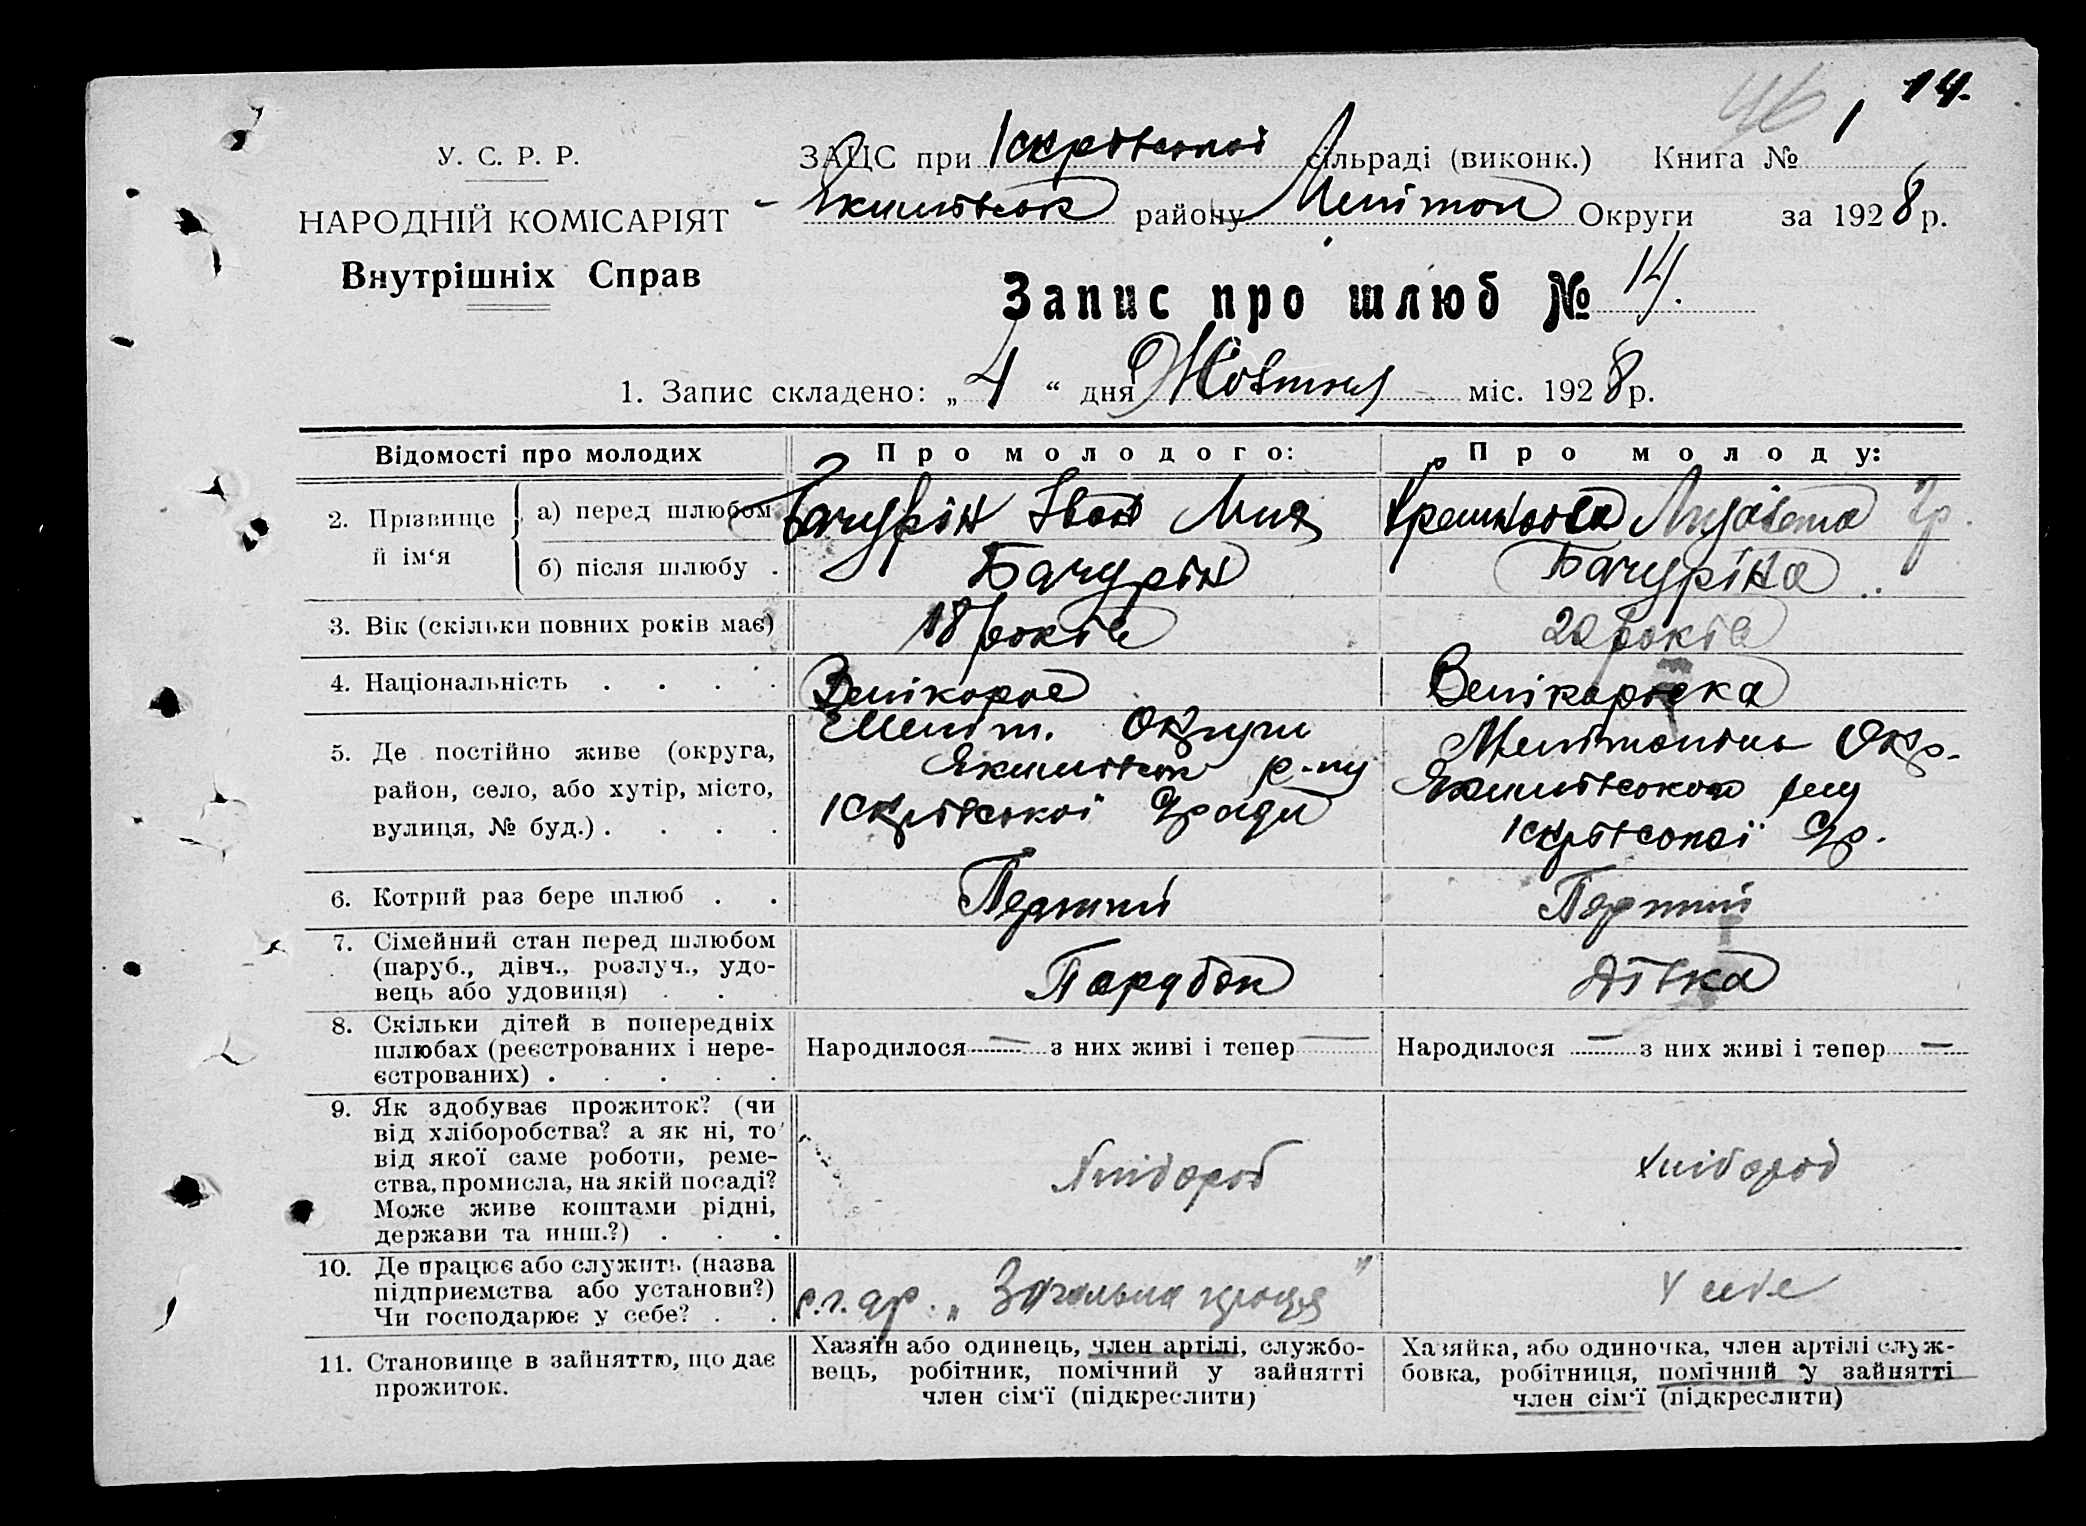 46 14.
У. С. Р. Р.
ЗАЦС при Іскрівській сільраді (виконк.) Книга № 1
Якимівськ району Мелітоп Округи за 1928 р.
НАРОДНІЙ КОМІСАРІЯТ
Внутрішніх Справ
Запис про шлюб № 14.
1. Запис складено: „ 4 “ дня Жовтня міс. 1928 р.
Відомості про молодих
Про молодого:
Про молоду:
2. Прізвище й ім‘я
а) перед шлюбом
Бачурін Іван
Лизавета Гр.
б) після шлюбу .
Бачурін
Бачуріна
3. Вік (скільки повних років має)
18 років
20 років
4. Національність . . . .
Велікорос
Велікороска
5. Де постійно живе (округа,
район, село, або хутір, місто,
вулиця, № буд.) . . . .
Меліт. Округи
Якимівськ р-ну
Іскрівської С/ради
Мелітопільс Окр.
Якимівського р-ну
Іскрівської С/р.
6. Котрий раз бере шлюб . .
Перший
Перший
7. Сімейний стан перед шлюбом
(паруб., дівч., розлуч., удо-
вець або удовиця) . . .
Парубок
Дівка
8. Скільки дітей в попередніх
шлюбах (реєстрованих і нере-
єстрованих) . . . . .
Народилося — з них живі і тепер —
Народилося — з них живі і тепер —
9. Як здобуває прожиток? (чи
від хліборобства? а як ні, то
від якої саме роботи, реме-
ства, промисла, на якій посаді?
Може живе коштами рідні,
держави та инш.?) . . .
Хлібороб
Хлібороб
10. Де працює або служить (назва
підприємства або установи?)
Чи господарює у себе? . .
с.г. ар. „Загальна праця”
У себе
11. Становище в зайняттю, що дає
прожиток.
Хазяїн або одинець, член артілі, службо-
вець, робітник, помічний у зайнятті
член сім‘ї (підкреслити)
Хазяйка, або одиночка, член артілі служ-
бовка, робітниця, помічний у зайнятті
член сім‘ї (підкреслити)